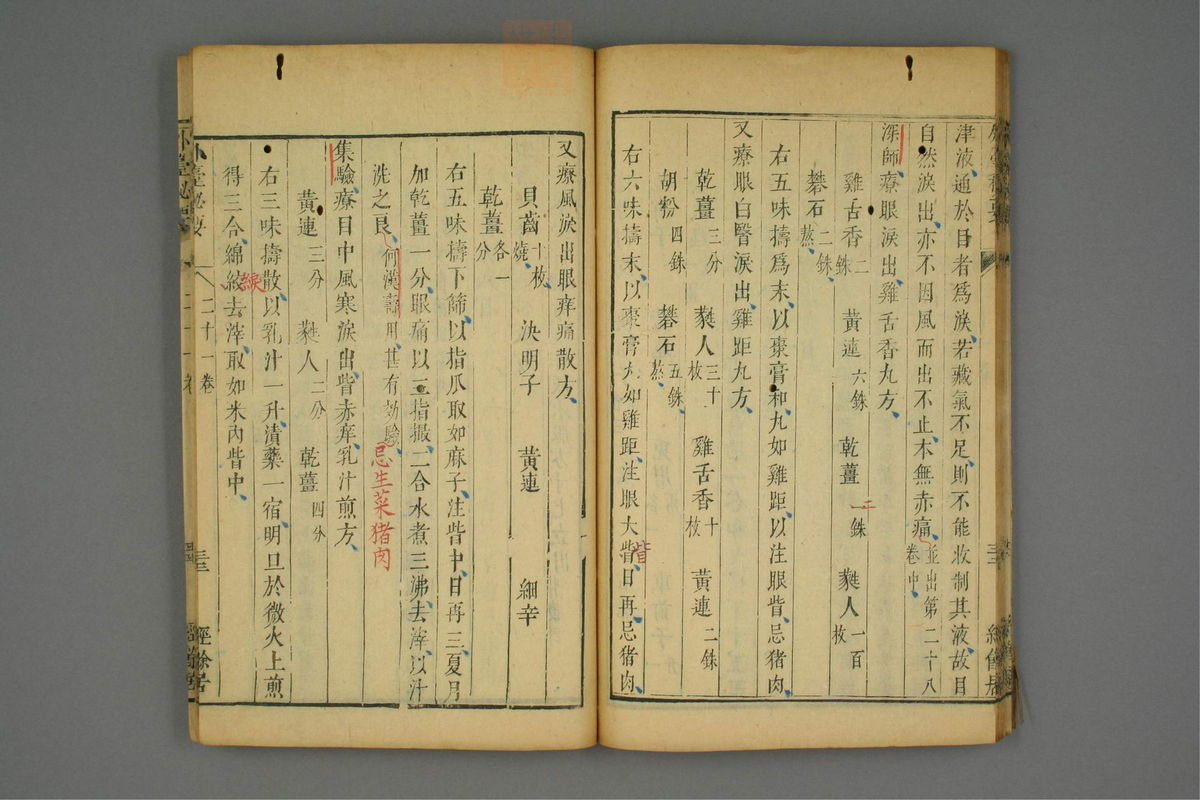 津液通於目者爲淚若藏氣不足則不能收制其液故目
自然淚出亦不因風而出不止本無赤痛並出第二十八卷中
深師療眼淚出雞舌香丸方
雞舌香二銖 黃連六銖 乾薑一銖 二 蕤人一百枚
礬石二銖熬
右五味擣爲末以棗膏和丸如雞距以注眼眥忌猪肉
又療眼白瞖淚出雞距丸方
乾薑三分 蕤人三十枚 雞舌香十枚 黃連二銖
胡粉四銖 礬石五銖熬
右六味擣末以棗膏丸如雞距注眼大眥日再忌猪肉
眥
又療風淚出眼痒痛散方
貝齒十枚燒 決明子 黃連 細辛
乾薑各一分
右五味擣下篩以指爪取如麻子注眥中日再三夏月
加乾薑一分眼痛以三指撮二合水煮三沸去滓以汁
洗之良何漢壽用甚有効驗 忌生菜猪肉
集驗療目中風寒淚出眥赤痒乳汁煎方
黃連三分 蕤人二分 乾薑四分
右三味擣散以乳汁一升漬藥一宿明旦於微火上煎
得三合綿絞去滓取如米內眥中
綟
外臺秘要 二十一卷 三 經餘居